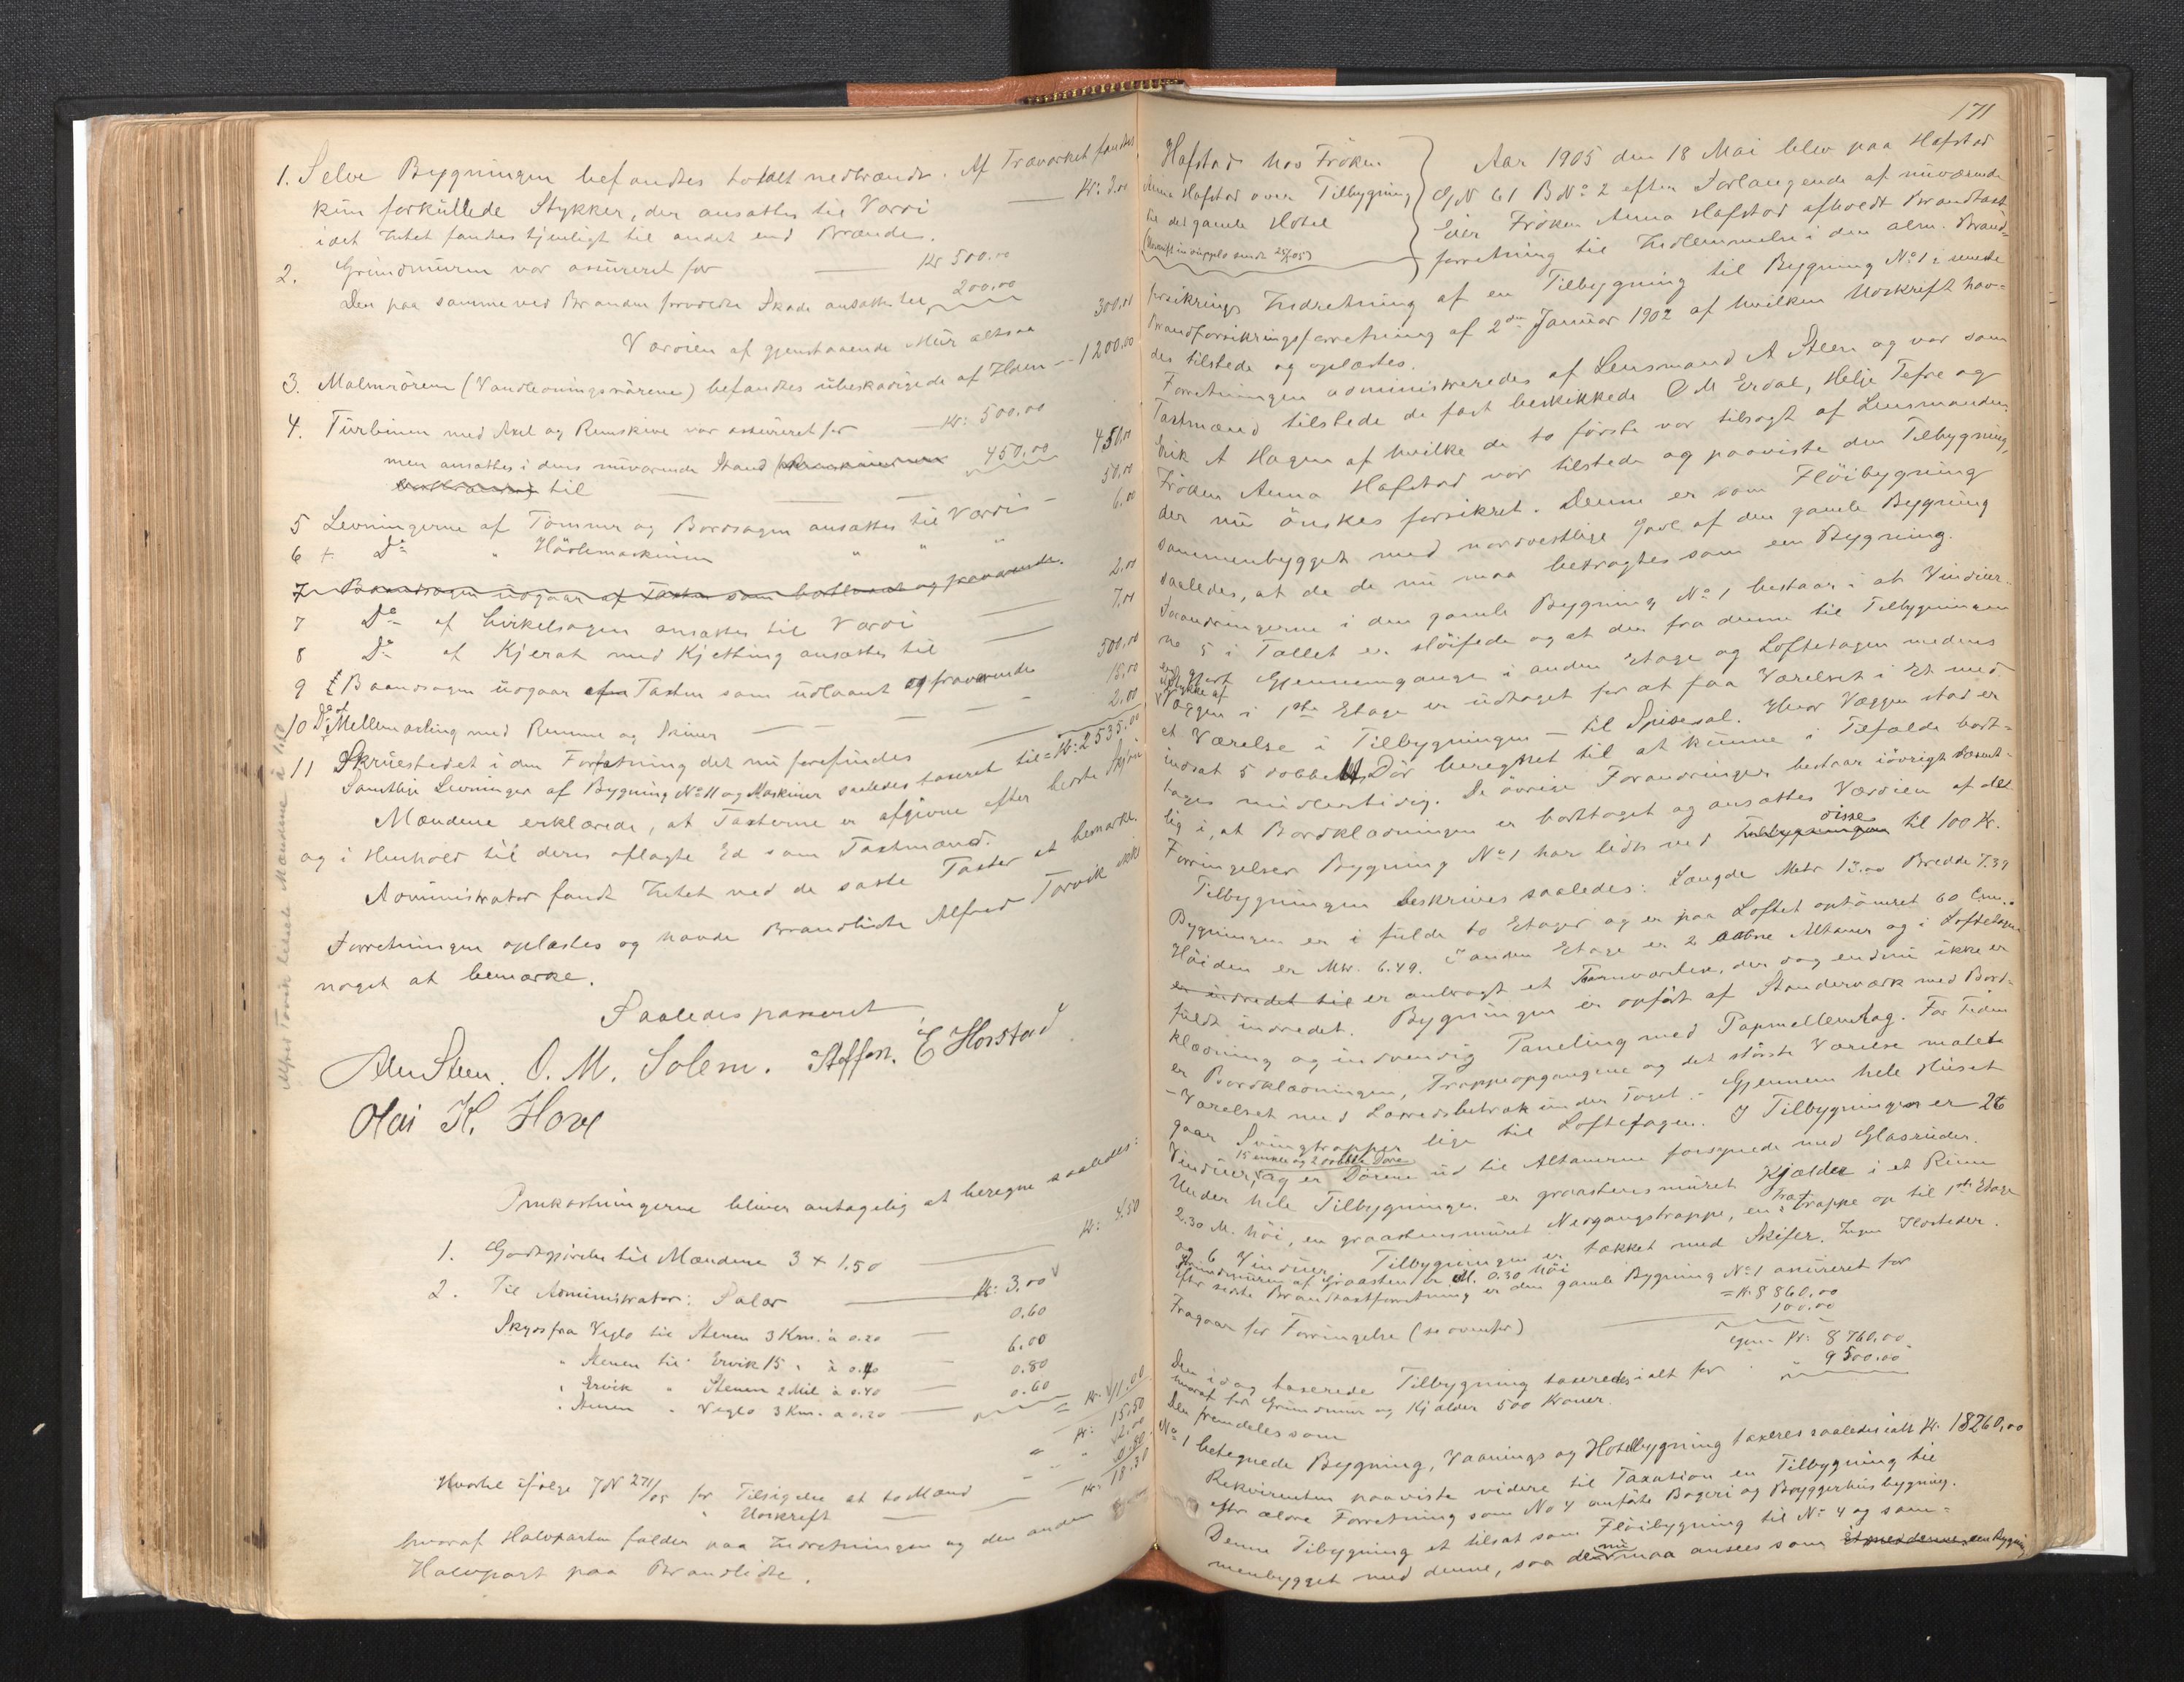 1. Selve Bygningen befandtes totalt nedbrændt. Af Træværket fandtes
kun forkullede Stykker, der ansattes til Værdi — Kr: 3.00
idet Intet fandtes tjenligt til andet end Brænde.
2. Grundmuren var assureret for — Kr 500.00
Den paa samme ved Branden forvoldte Skade ansattes til 200.00
Værdien af gjenstaaende Mur altsaa 300.00
3. Malmrörene (Vandledningsrörene) befandtes ubeskadigede af Ilden — 1200.00
4. Turbinen med Axel og Remskive var assureret for — Kr: 500.00
men ansattes i dens nuværende Stand 450.00 450.00
til
5 Levningerne af Tömmer og Bordsagen ansattes til Værdi — 50.00
6 + Do " Hövlemaskinen " " " 6.00
7 Baandsagen udgaar af Taxten som fraværende.
7 Do af Cirkelsagen ansattes til Værdi 2.00
8 Do af Kjerat med Kjetting ansattes til 7.00
9 Baandsagen udgaar af Taxten som udlaant og fraværende 500.00
10 Do af Mellemasling med Remme og Skiver — 15.00
11 Skruestedet i den Forfatning det nu forefindes 2.00
Samtlige Levninger af Bygning No 11 og Maskiner saaledes taxeret til = Kr: 2535.00
Mændene erklærede, at Taxterne er afgivne efter bedste Skjön
og i Henhold til deres aflagte Ed som Taxtmænd.
Administrator fandt Intet ved de satte Taxter at bemærke.
Forretningen oplæstes og havde Brandlidte Alfred Torvik ikke
noget at bemærke.
Saaledes passeret
Alm Steen. O. M. Solem. Steffen. E Horstad
Olai K. Hove
Alfred Torvik tilsiet Mændene à 1.50
Omkostningerne bliver antagelig at beregne saaledes:
1. Godtgjörelse til Mændene 3 + 1.50 — Kr: 4.50
2. Til Administrator: Salær — Kr: 3.00
Skyds fra Veglo til Stenen 3 Km. à 0.20 — 0.60
" Stenen til Ervik 15 " à 0.40 — 6.00
" Ervik " Stenen 2 Mil à 0.40 — 0.80
" Stenen " Veglo 3 Km. à 0.20 — 0.60
= Kr: 11.00
Kr: 15.50
Hvortil ifølge JN 271/05 for Tilsigelse at to Mænd — " 2.00
" Udskrift — " 0.80
Kr: 18.30
hvoraf Halvparten falder paa Indretningen og den anden
Halvpart paa Brandlidte.
171
Hafstad hos Fröken
Anna Hafstad over Tilbygning
til det gamle Hotel
(Udskrift in duplo sendt 25/5 05)
Aar 1905 den 18 Mai blev paa Hafstad
GN 61 BNo 2 efter Forlangende af nuværende
Eier Fröken Anna Hafstad afholdt Brandtaxt
forretning til Indlemmelse i den alm. Brand=
forsikrings Indretning af en Tilbygning til Bygning No 1 i seneste
Brandforsikringsforretning af 2den Januar 1902 af hvilken Udskrift hav=
des tilstede og oplæstes.
Forretningen administreredes af Lensmand A Steen og var som
Taxtmænd tilstede de fast beskikkede O M Erdal, Helje Tefre og
Erik A Hagen af hvilke de to förste var tilsagt af Lensmanden.
Fröken Anna Hafstad var tilstede og paaviste den Tilbygning,
der nu önskes forsikret. Denne er som Flöibygning
sammenbygget med nordvestlige Gavl af den gamle Bygning
saaledes, at de nu maa betragtes som een Bygning.
Forandringerne i den gamle Bygning No 1 bestaar i at Vinduer=
ne 5 i Tallet er slöifede og at der fra denne til Tilbygningen
er gjort Gjennemgange i anden Etage og Loftetagen medens
et Stykke af
Væggen i 1ste Etage er udtaget for at faa Værelset i Et med
et Værelse i Tilbygningen — til Spisesal. Hvor Væggen stod er
indsat 5 dobbelt Dör beregnet til at kunne i Tilfælde bort=
tages midlertidig. De övrige Forandringer bestaar iövrigt væsent=
lig i, at Bordklædningen er borttaget og ansattes Værdien af det
Forringelser Bygning No 1 har lidt ved disse til 100 Kr.
Tilbygningen beskrives saaledes: Længde Metr 13.00 Bredde 7.39
Bygningen er i fulde to Etager og er paa Loftet optömret 60 Cm.
Höiden er Mtr. 6.49. I anden Etage er 2 aabne Altaner og i Loftetagen
er indredet til er anbragt et Taarnværelse, der dog endnu ikke er
fuldt indredet. Bygningen er opfört af Standerværk med Bord=
klædning og indvendig Paneling med Papmellemlag. For Tiden
er Bordklædningen, Trappeopgangene og det störste Værelse malede
— Værelset med Lærredsbetræk under Taget. — Gjennem hele Huset
gaar Svingtrapper lige til Loftetagen. I Tilbygningen er 26
15 enkle og 2 dobbelte Döre
Vinduer, og er Dörene ud til Altanerne forsynede med Glasruder.
Under hele Tilbygningen er graastensmuret Kjælder i et Rum
2.30 M. höi, en graastensmuret Nedgangstrappe, en Trætrappe op til 1ste Etage
og 6 Vinduer. Tilbygningen er tækket med Skifer. Ingen Ildsteder.
Grundmuren af Graasten er M. 0.30 höi
Efter sidste Brandtaxtforretning er den gamle Bygning No 1 assureret for
= Kr 8860.00
Fragaar for Forringelse (se ovenfor) — 100.00
igjen Kr: 8760.00
Den idag taxerede Tilbygning taxeredes ialt for " 9500.00
hvoraf for Grundmur og Kjælder 500 Kroner.
Den fremdeles som
No 1 betegnede Bygning, Vaanings og Hotelbygning taxeres saaledes ialt Kr. 18260.00
Rekvirenten paaviste videre til Taxation en Tilbygning til
efter ældre Forretning som No 4 anförte Bageri og Bryggerhusbygning.
Denne Tilbygning er tilsat som Flöibygning til No 4 og sam=
menbygget med denne, saa de nu maa ansees som Et med denne een Bygning